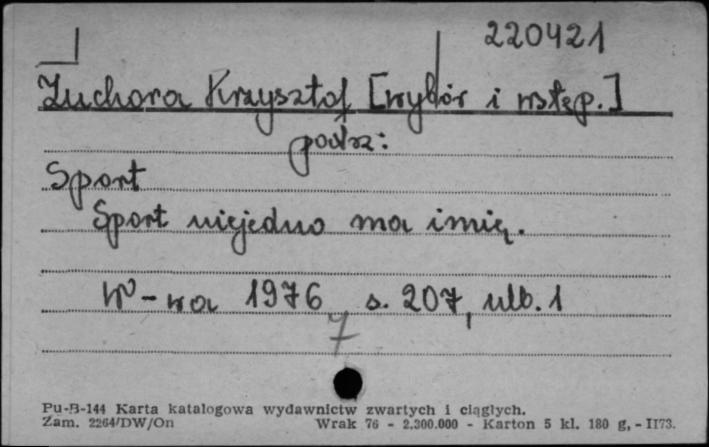 220421
Zuchora Krzysztof [wybór i wstęp.]
podz:
Sport
Sport niejedno ma imię.
W-wa 1976 s. 207, nlb. 1
7
Pu-B-144 Karta katalogowa wydawnictw zwartych i ciągłych.
Zam. 2264/DW/On Wrak 76 - 2.300.000 - Karton 5 kl. 180 g, - II73.